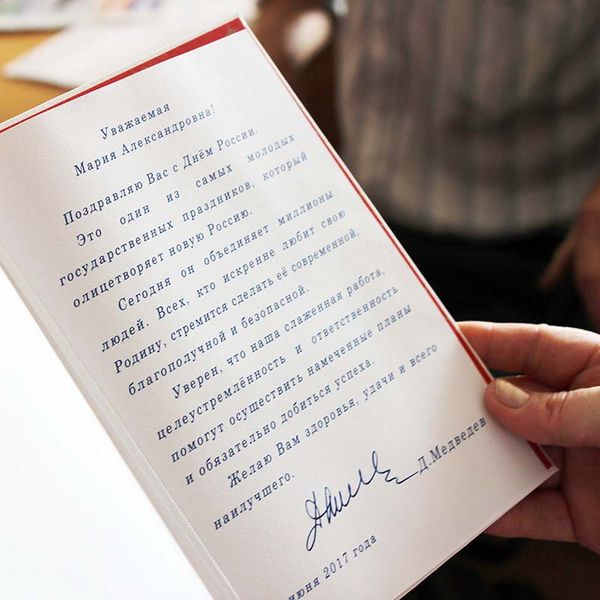 Уважаемая
Мария Александровна!
Поздравляю Вас с Днём России.
Это один из самых молодых
государственных праздников, который
олицетворяет новую Россию.
Сегодня он объединяет миллионы
людей. Всех, кто искренне любит свою
Родину, стремится сделать её современной,
благополучной и безопасной.
Уверен, что наша слаженная работа,
целеустремлённость и ответственность
помогут осуществить намеченные планы
и обязательно добиться успеха.
Желаю Вам здоровья, удачи и всего
наилучшего.
Д.Медведев
июня 2017 года